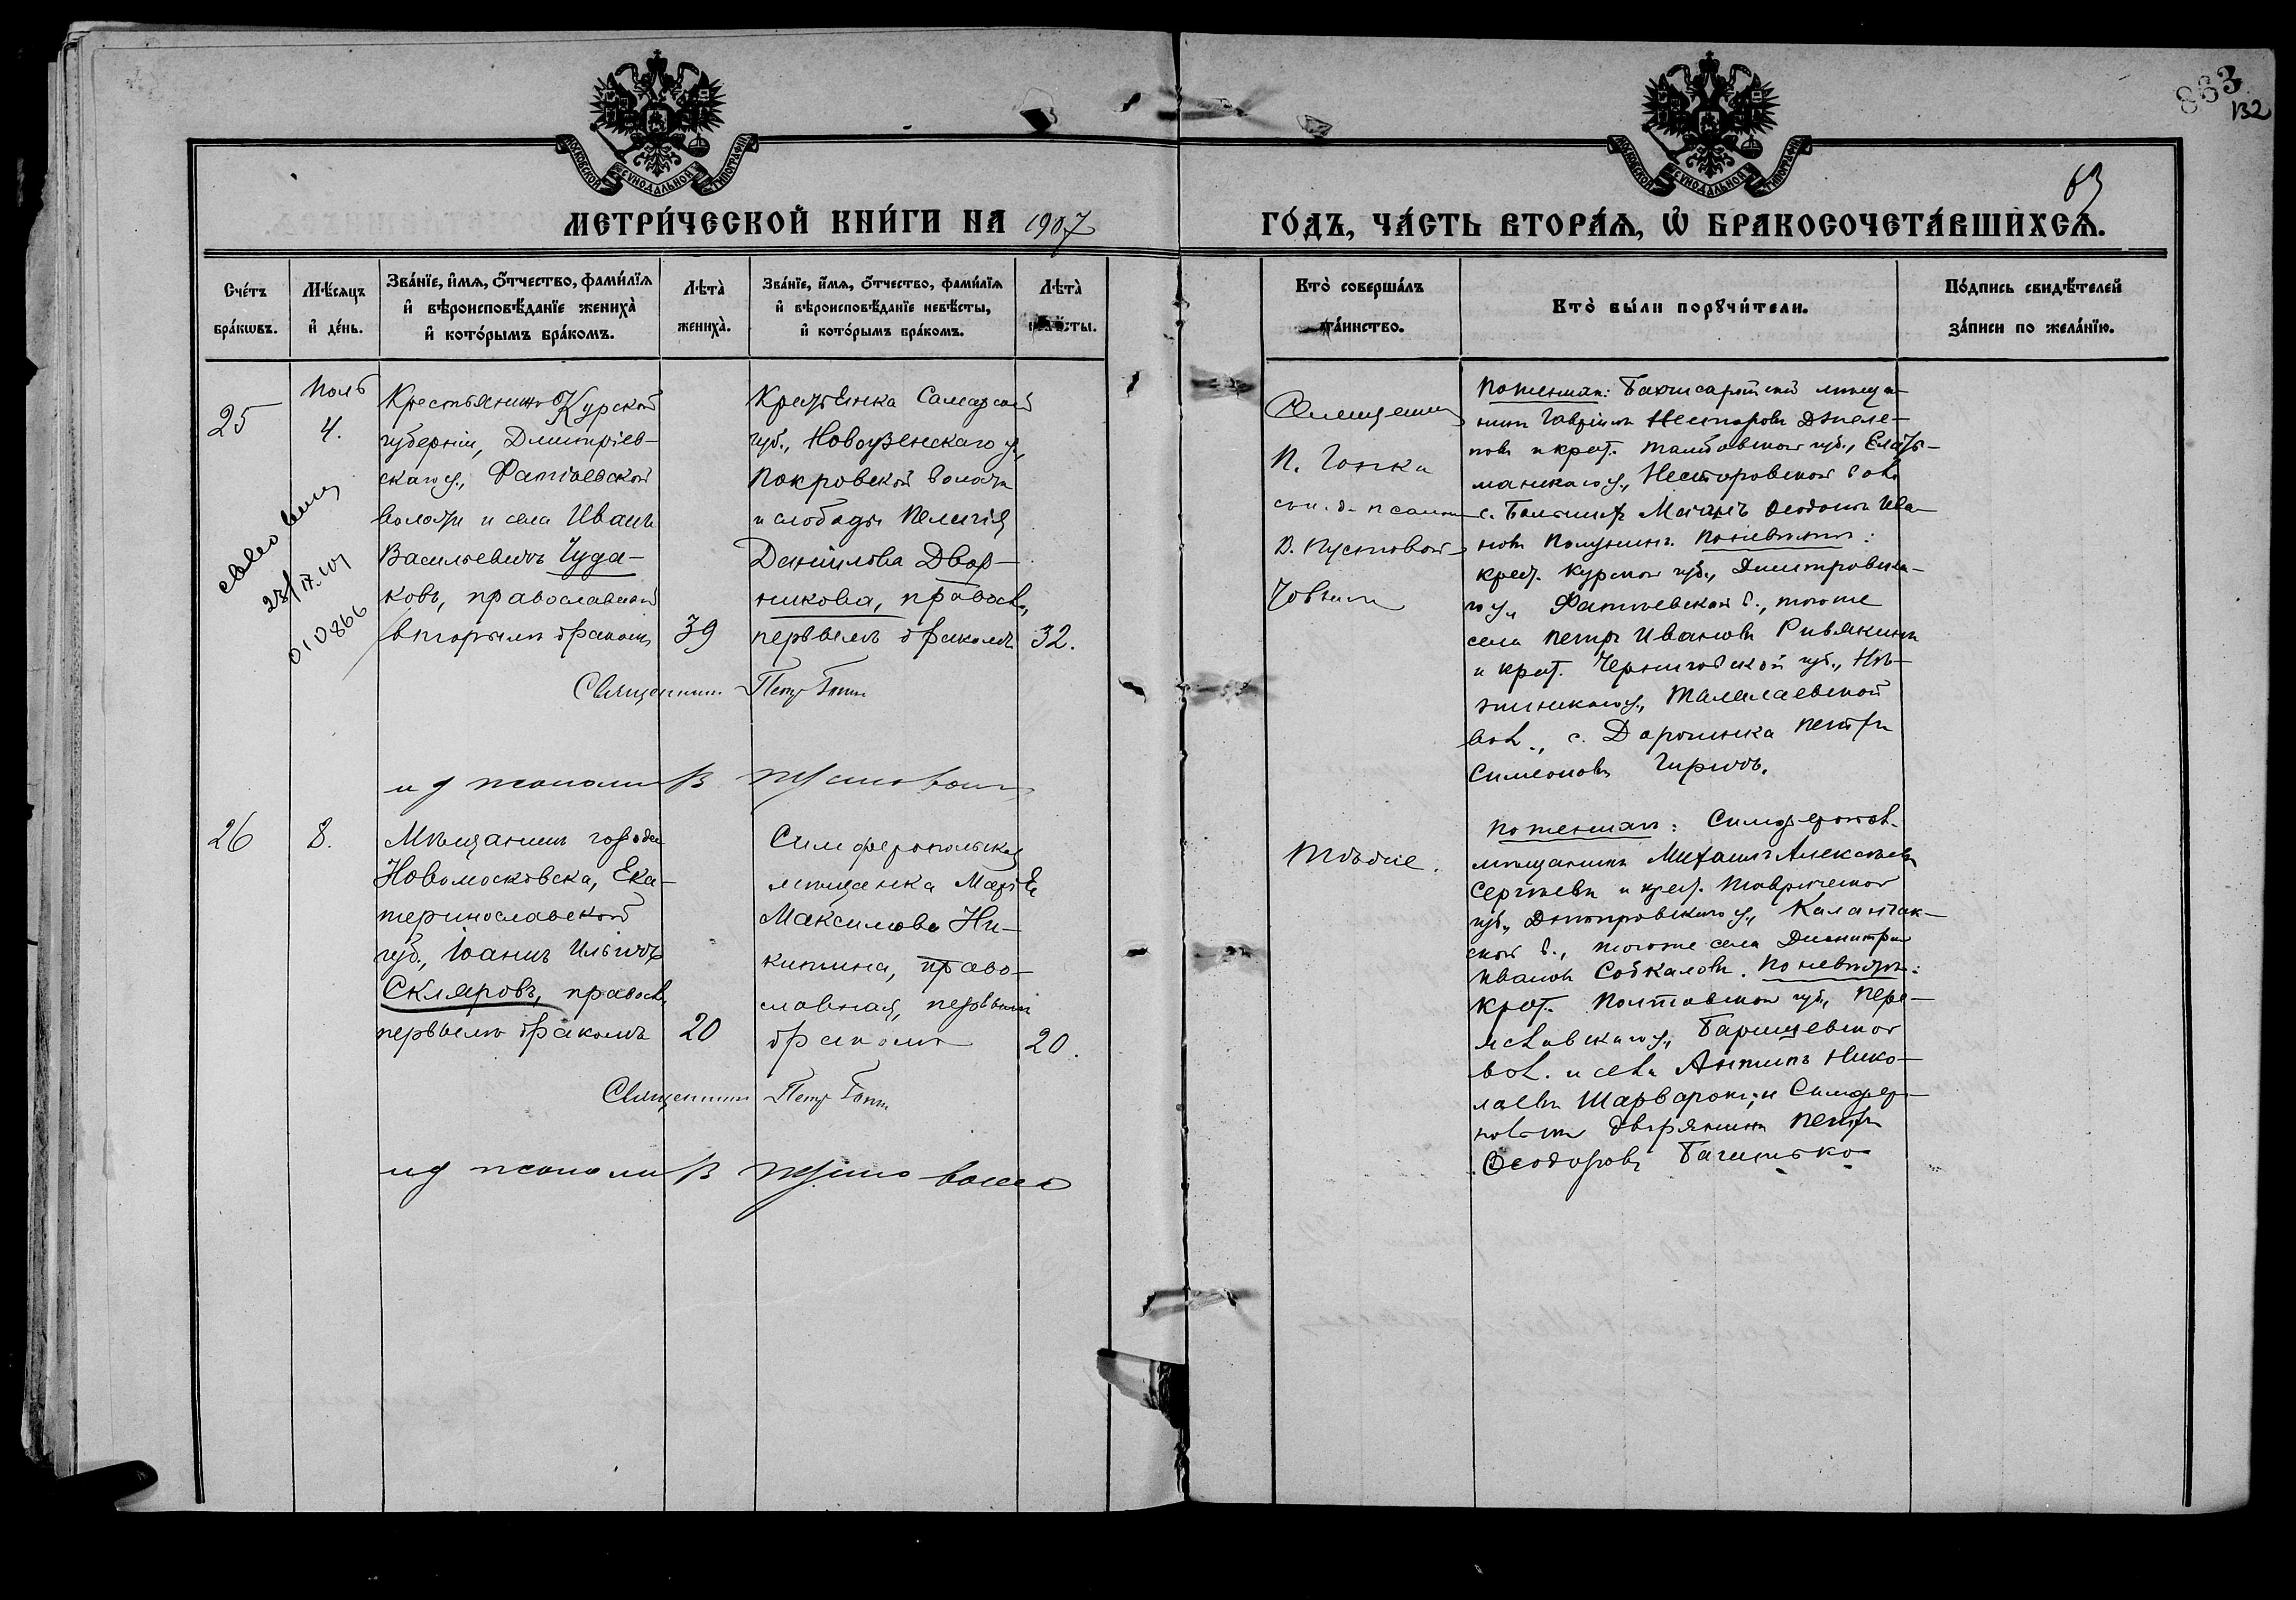 863
132
63
МОСКОВСКОЙ СѴНОДАЛЬНОЙ ТИПОГРАФІИ
МОСКОВСКОЙ СѴНОДАЛЬНОЙ ТИПОГРАФІИ
МЕТРИ́ЧЕСКОЙ КНИ́ГИ НА 1907
ГО́ДЪ, ЧА́СТЬ ВТОРА́Ѧ, Ѡ҆ БРАКОСОЧЕТА́ВШИХСѦ.
Сче́тъ
бра́кѡвъ.
Мѣ́сѧцъ
и҆ де́нь.
Зва́нїе, и҆́мѧ, ѻ҆́тчество, фами́лїѧ
и҆ вѣроисповѣ́данїе жениха̀
и҆ кото́рымъ бра́комъ.
Лѣта̀
жениха̀.
Зва́нїе, и҆́мѧ, ѻ҆́тчество, фами́лїѧ
и҆ вѣроисповѣ́данїе невѣ́сты,
и҆ кото́рымъ бра́комъ.
Лѣта̀
невѣ́сты.
Кто̀ соверша́лъ
та́инство.
Кто̀ бы́ли порꙋчи́тели.
По́дпись свидѣ́телей
за́писи по жела́нїю.
25
Іюль
4.
010866
Крестьянинъ Курской
губерніи, Дмитріев-
скаго у., Фатѣевской
волости и села Иванъ
Васильевичъ Чуда-
ковъ, православный
вторымъ бракомъ
39
Крестьянка Самарской
губ., Новоузенскаго у.,
Покровской волости
и слободы Пелагія
Даніилова Двор-
никова, правосл.,
первымъ бракомъ
32.
Священникъ
П. Гопка
и. д. псалом.
В. Пустовой-
По женихѣ: Бахчисарайскій мѣща-
нинъ Гавріилъ Несторовъ
и крест. Тамбовской губ., Елать-
Ива-
новъ Полунинъ. По невѣстѣ:
крест. Курской губ., Дмитровска-
го у., Фатѣевской в., тогоже
села Петръ Ивановъ Ривякинъ
и крест. Черниговской губ., Нѣ-
жинскаго у., Талалаевской
вол., с. Дорогинка Петръ
Симеоновъ
Священникъ Петръ
и д псаломщ В
26
8.
Мѣщанинъ города
Новомосковска, Ека-
теринославской
губ., Іоаннъ Ильичъ
Скляровъ, правосл.
первымъ бракомъ
20
Симферопольская
мѣщанка Марія
Максимова Ни-
китина, право-
славная, первымъ
бракомъ
20.
Тѣже.
По женихѣ: Симферопол.
мѣщанинъ Михаилъ Алексѣевъ
Сергѣевъ и крест. Таврической
губ., Днѣпровскаго у., Каланчак-
ской в., тогоже села Димитрій
Ивановъ Собкаловъ. По невѣстѣ:
Крест. Полтавской губ., Пере-
яславскаго у., Барышевской
вол. и села Антипъ Нико-
лаевъ Шарварокъ; и Симферо-
польскій дворянинъ Петръ
Ѳеодоровъ
Священникъ Петръ
и д псаломщ В